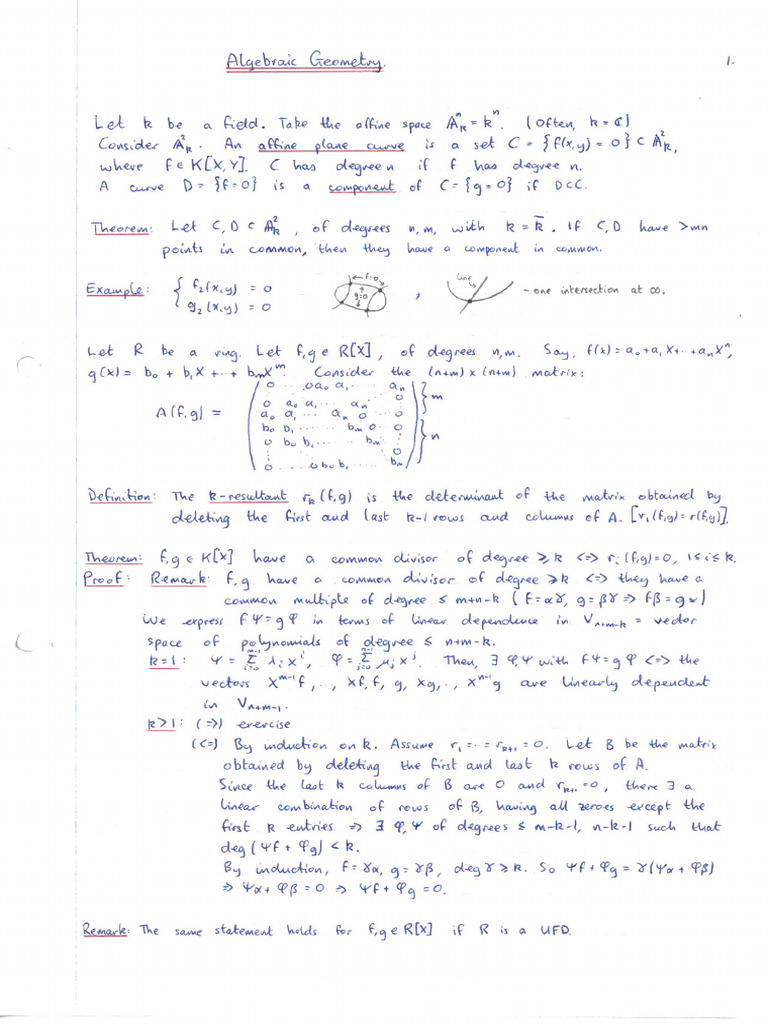 Algebraic Geometry. 1.
Let k be a field. Take the affine space 𝔸ⁿₖ = kⁿ. (Often, k = ℂ)
Consider 𝔸²ₖ. An affine plane curve is a set C = {f(x,y) = 0} ⊂ 𝔸²ₖ,
where f ∈ K[X,Y]. C has degree n if f has degree n.
A curve D = {f=0} is a component of C = {g=0} if D⊂C.
Theorem: Let C, D ⊂ 𝔸²ₖ, of degrees n, m, with k = k̄. If C, D have > mn
points in common, then they have a component in common.
Example: { f₂(x,y) = 0 ← f=0 → g=0 , line - one intersection at ∞.
g₂(x,y) = 0
Let R be a ring. Let f,g ∈ R[X], of degrees n,m. Say, f(x) = a₀+a₁X+⋯+aₙXⁿ,
g(x) = b₀ + b₁X +⋯+ bₘXᵐ Consider the (n+m) x (n+m) matrix:
0 ⋯ 0 a₀ a₁ ⋯ aₙ
0 ⋯ 0
0 a₀ a₁ ⋯ aₙ 0 } m
A(f,g) = a₀ a₁ ⋯ aₙ 0 ⋯ 0
b₀ b₁ ⋯ bₘ 0 ⋯ 0
0 b₀ b₁ ⋯ bₘ 0 } n
0 ⋯ 0
0 ⋯ 0 b₀ b₁ ⋯ bₘ
Definition: The k-resultant rₖ(f,g) is the determinant of the matrix obtained by
deleting the first and last k-1 rows and columns of A. [r₁(f,g) = r(f,g)].
Theorem: f,g ∈ K[X] have a common divisor of degree ≥ k <=> rᵢ(f,g)=0, 1≤i≤k.
Proof: Remark: f,g have a common divisor of degree ≥ k <=> they have a
common multiple of degree ≤ m+n-k (f=αγ, g=βγ => fβ = gα)
We express fΨ = gφ in terms of linear dependence in Vₙ₊ₘ₋ₖ = vector
space of polynomials of degree ≤ n+m-k.
k=1: Ψ = Σᵢ₌₀ᵐ⁻¹ λᵢ xⁱ, φ = Σⱼ₌₀ⁿ⁻¹ μⱼ xʲ. Then, ∃ φ,Ψ with fΨ = gφ <=> the
vectors Xᵐ⁻¹f, .., Xf, f, g, Xg, .., Xⁿ⁻¹g are linearly dependent
in Vₙ₊ₘ₋₁.
k>1: (=>) exercise
(<=) By induction on k. Assume r₁ = ⋯ = rₖ₊₁ = 0. Let B be the matrix
obtained by deleting the first and last k rows of A.
Since the last k columns of B are 0 and rₖ₊₁ = 0, there ∃ a
linear combination of rows of B, having all zeroes except the
first k entries => ∃ φ,Ψ of degrees ≤ m-k-1, n-k-1 such that
deg(Ψf + φg) < k.
By induction, f = γα, g = γβ, deg γ ≥ k. So Ψf + φg = γ(Ψα + φβ)
=> Ψα + φβ = 0 => Ψf + φg = 0.
Remark: The same statement holds for f,g ∈ R[X] if R is a UFD.